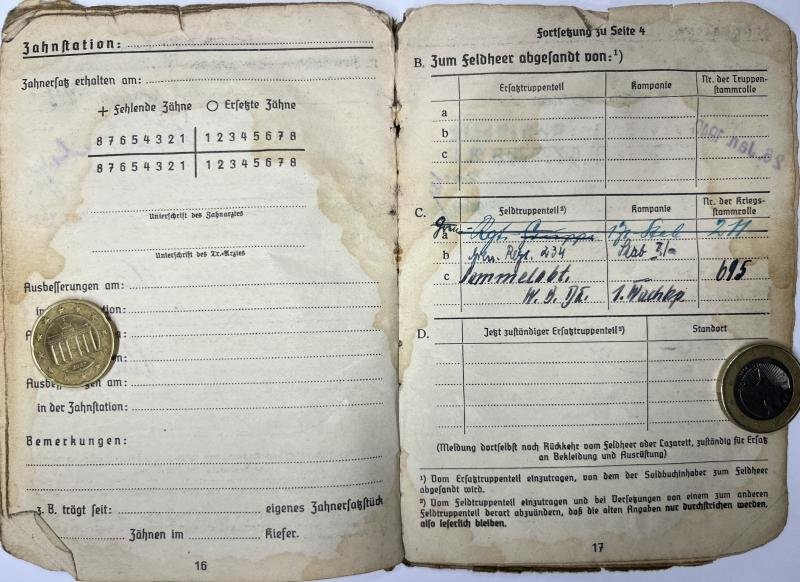 Zahnstation:
Zahnersatz erhalten am:
+ Fehlende Zähne O Ersetzte Zähne
8 7 6 5 4 3 2 1 | 1 2 3 4 5 6 7 8
8 7 6 5 4 3 2 1 | 1 2 3 4 5 6 7 8
Unterschrift des Zahnarztes
Unterschrift des Tr.-Arztes
Ausbesserungen am:
in
tion:
A
en:
Ausbess gen am:
in der Zahnstation:
Bemerkungen:
z. B. trägt seit: eigenes Zahnersatzstück
Zähnen im Kiefer.
16
Fortsetzung zu Seite 4
B. Zum Feldheer abgesandt von:¹)
Ersatztruppenteil Kompanie Nr. der Truppen-
stammrolle
a
b
c
26. Jan. 194
C. Feldtruppenteil²) Kompanie Nr. der Kriegs-
stammrolle
a
b Regt. 234
c Sammelabt. 695
1. Wachkp.
D. Jetzt zuständiger Ersatztruppenteil²) Standort
(Meldung dortselbst nach Rückkehr vom Feldheer oder Lazarett, zuständig für Ersatz
an Bekleidung und Ausrüstung)
¹) Vom Ersatztruppenteil einzutragen, von dem der Soldbuchinhaber zum Feldheer
abgesandt wird.
²) Vom Feldtruppenteil einzutragen und bei Versetzungen von einem zum anderen
Feldtruppenteil derart abzuändern, daß die alten Angaben nur durchstrichen werden,
also leserlich bleiben.
17